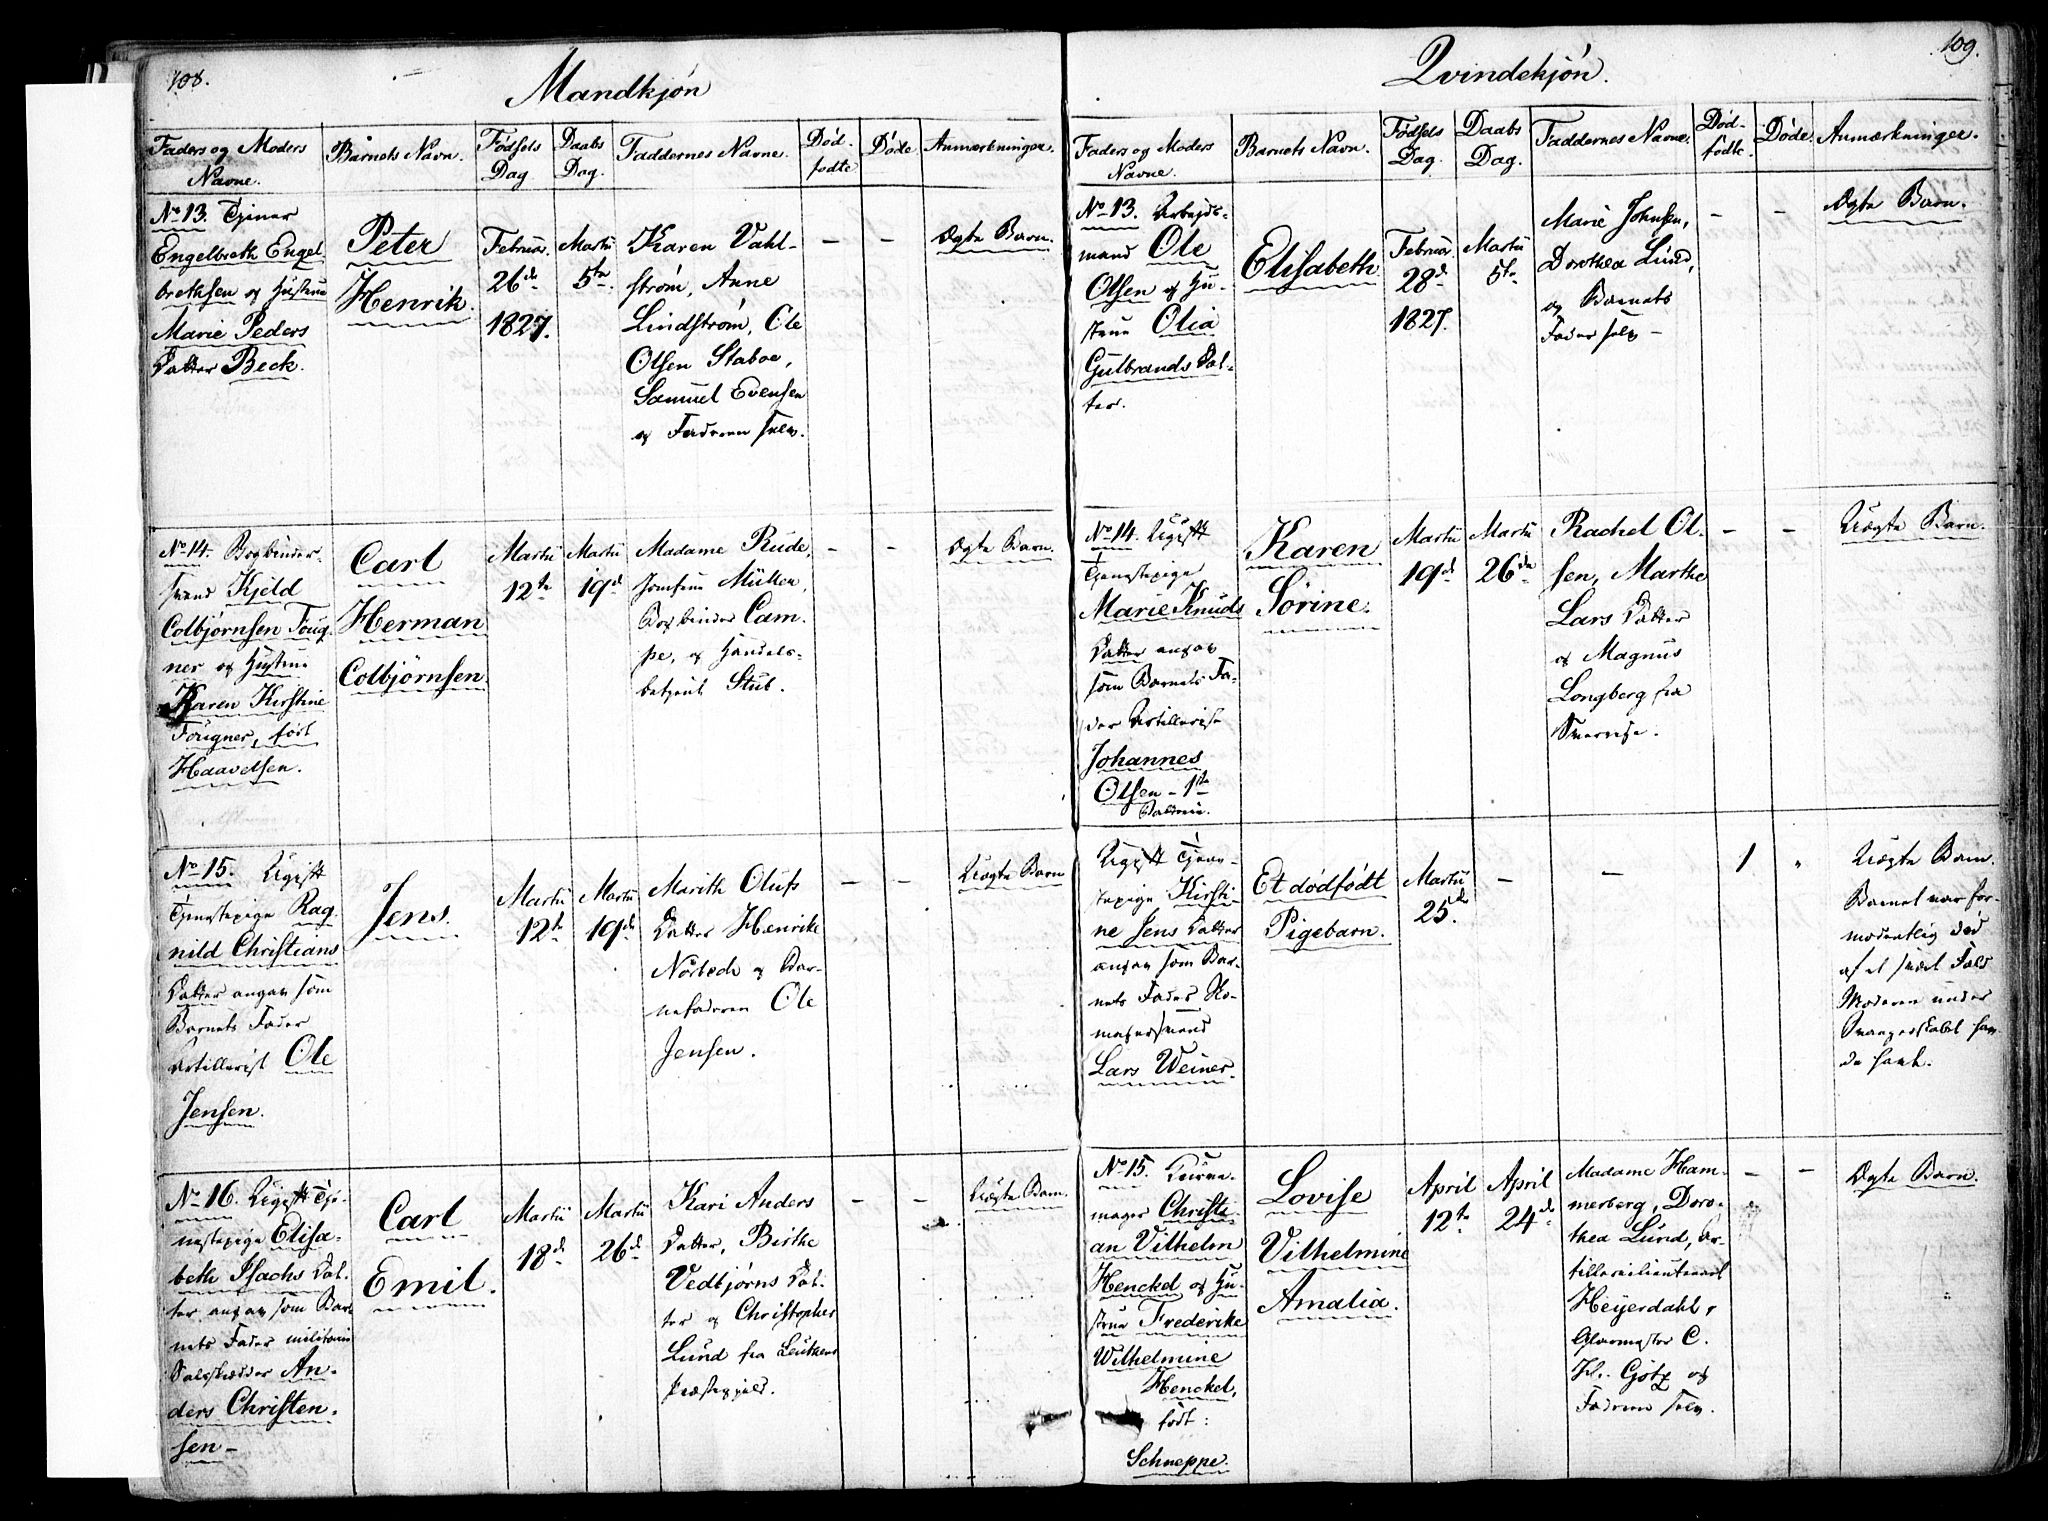 108.
Mandkjøn
Faders og Moders
Navne.
Barnets Navn.
Fødsels
Dag
Daabs
Dag.
Faddernes Navne.
Død-
fødte
Døde
Anmærkninger.
No 13. Tjener
Engelbreth Engel
brethsen og Hustrue
Marie Peders
Datter Beck.
Peter
Henrik.
Februar.
26de
1827.
Martii
5te
Karen Vahl-
strøm, Anne
Lindstrøm, Ole
Olsen Staboe,
Samuel Evensen
og Faderen selv.
— —
Ægte Barn.
No 14. Bogbinder-
svend Kjeld
Colbjørnsen Foug-
ner og Hustrue
Karen Kirstine
Fougner, født
Haavelsen.
Carl
Herman
Colbjørnsen.
Martii
12te
Martii
19de
Madame Rude,
Jomfrue Müller,
Bogbinder Cam-
pe, og Handels-
betjent Stub.
— —
Ægte Barn.
No 15. Ugift
Tjenestepige Rag-
nild Christians
Datter angav som
Barnets Fader
Artillerist Ole
Jensen.
Jens.
Martii
12te
Martii
19de
Marith Olufs
Datter Henrike
Nørbech og Bar-
nefaderen Ole
Jensen.
— —
Uægte Barn
No 16. Ugift Tje-
nestepige Elisa-
beth Isachs Dat-
ter angav som Bar-
nets Fader militair
Anders Christen-
sen —
Carl
Emil.
Martii
18de
Martii
26de
Kari Anders
Datter, Birthe
Vedbjørns Dat-
ter og Christopher
Lund fra
Præstegjeld.
— —
Uægte Barn.
109.
Qvindekjøn.
Faders og Moders
Navne.
Barnets Navn.
Fødsels
Dag.
Daabs
Dag.
Faddernes Navne.
Død-
fødte.
Døde.
Anmærkninger.
No 13. Arbejds-
mand Ole
Olsen og Hu-
strue Olia
Gulbrands Dat-
ter.
Elisabeth
Februar
28de
1827.
Martii
5te
Marie Johnsen,
Dorothea Lund,
og Barnets
Fader selv —
— —
Ægte Barn.
No 14. Ugift
Tjenestepige
Marie Knuds
Datter angav
som Barnets Fa-
der Artillerist
Johannes
Olsen — 1ste
Karen
Sørine.
Martii
19de
Martii
26de
Rachel Ol-
sen, Marthe
Lars Datter
og Magnus
Longberg fra
— —
Uægte Barn.
Ugift Tjene-
stepige Kirsti-
ne Jens Datter
angav som Bar-
nets Fader Sko-
magersvend
Lars Weiner.
Et dødfødt
Pigebarn.
Martii
25de
— —
1 "
Uægte Barn.
Barnet var for-
modentlig død
af et svært Fald
Moderen under
Svangerskabet hav-
de havt.
No 15. Buune-
mager Christi-
an Vilhelm
Henckel og Hu-
strue Frederike
Wilhelmine
Henckel,
født:
Schneppe.
Lovise
Vilhelmine
Amalia.
April
12te
April
24de
Madame Ham-
merberg, Doro-
thea Lund, Ar-
tillerilieutenant
Heyerdahl,
Glarmester C.
H. Götz og
Faderen selv.
— —
Ægte Barn.